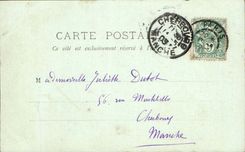 CARTE POSTALE
Ce côté est exclusivement réservé à l'adresse
CHERBOURG
MANCHE
Mademoiselle Juliette Dubot
56, rue
Cherbourg
Manche